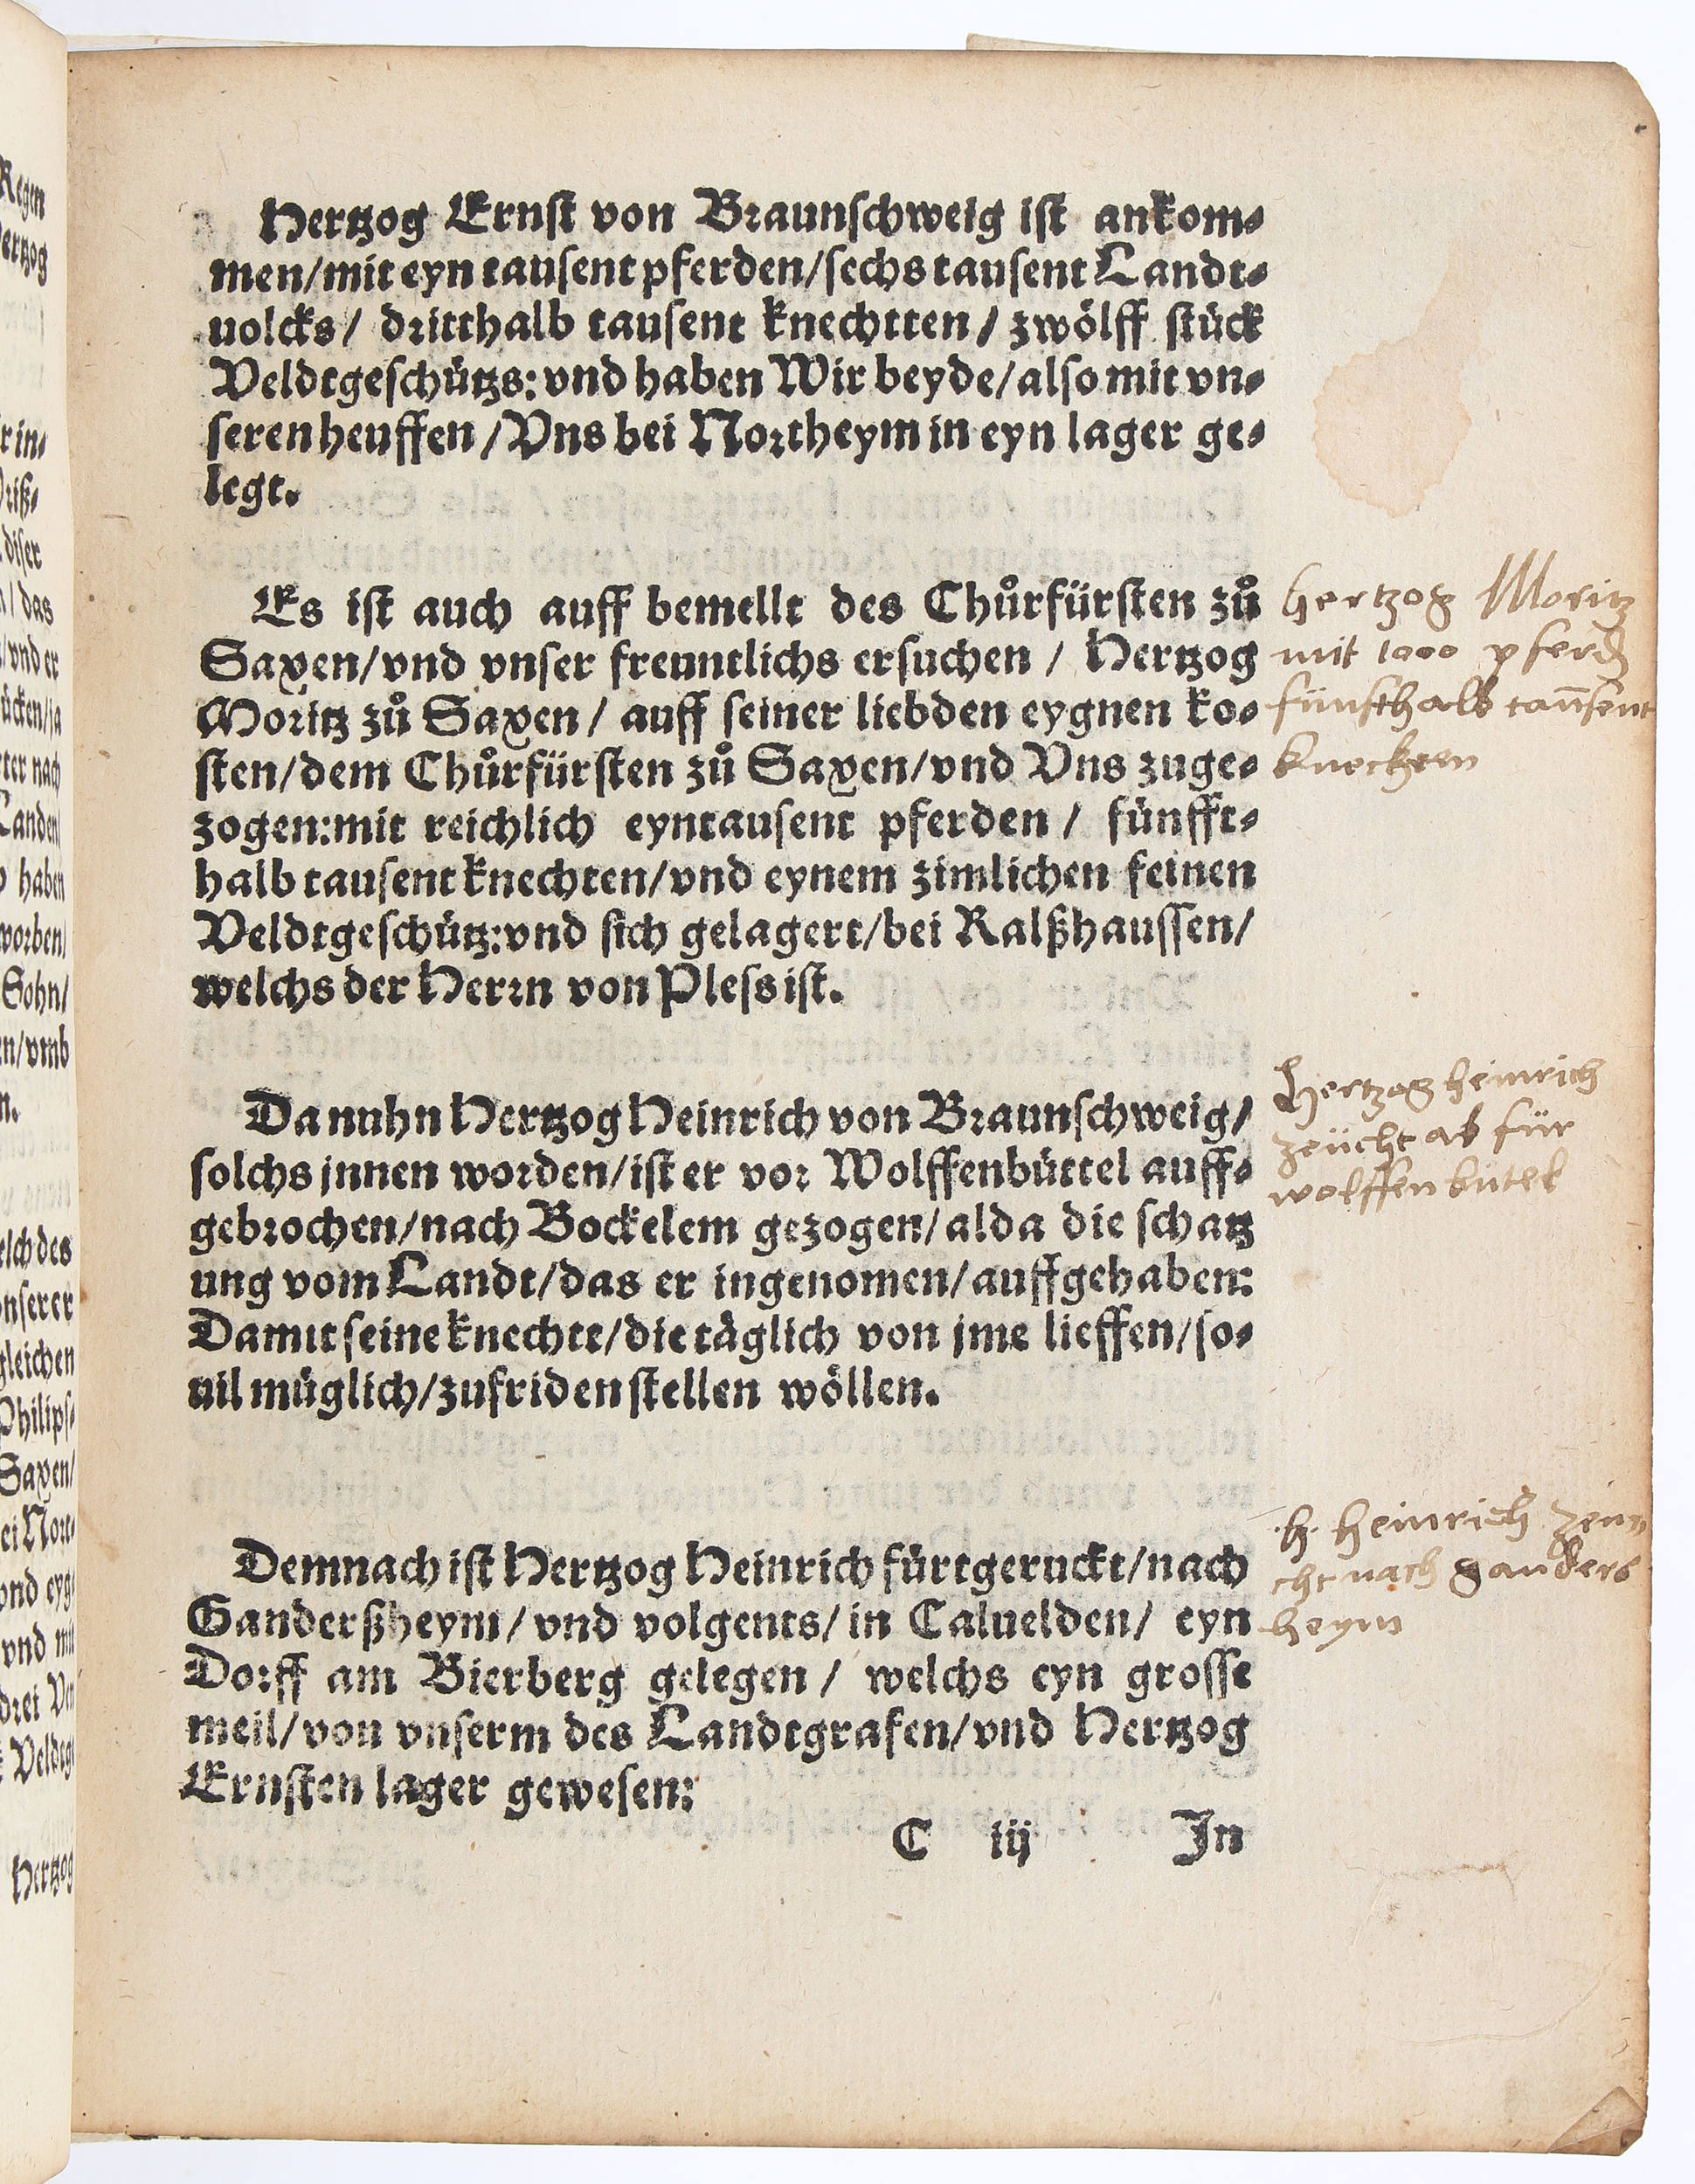 Hertzog Ernst von Braunschweig ist ankom⸗
men/mit eyn tausent pferden/sechs tausent Landt⸗
uolcks/ dritthalb tausent knechtten/ zwölff stück
Veldtgeschützs: vnd haben Wir beyde/also mit vn⸗
seren heuffen/Vns bei Northeym in eyn lager ge⸗
legt.
Es ist auch auff bemellt des Chůrfürsten zů
Saxen/vnd vnser freuntlichs ersuchen / Hertzog
Moritz zů Saxen/ auff seiner liebden eygnen ko⸗
sten/dem Chůrfürsten zů Saxen/vnd Vns zuge⸗
zogen:mit reichlich eyntausent pferden / fünfft⸗
halb tausent knechten/vnd eynem zimlichen feinen
Veldtgeschütz:vnd sich gelagert/bei Ralßhaussen/
welchs der Herrn von Pless ist.
hertzog Moritz
mit 1000 pferd
fünfthalb taussent
knechten
Da nuhn Hertzog Heinrich von Braunschweig/
solchs jnnen worden/ist er vor Wolffenbüttel auff⸗
gebrochen/nach Bockelem gezogen/alda die schatz
ung vom Landt/das er ingenomen/auffgehaben:
Damit seine knechte/die täglich von jme lieffen/so⸗
uil müglich/zufriden stellen wöllen.
Hertzog heinrich
zeücht ab für
wolffenbütel
Demnach ist Hertzog Heinrich fürtgeruckt/nach
Ganderßheym/vnd volgents/in Caluelden/ eyn
Dorff am Bierberg gelegen / welchs eyn grosse
meil/von vnserm des Landtgrafen/vnd Hertzog
Ernsten lager gewesen:
.h. heinrich zeuu
cht nach ganders
heym
C iij In